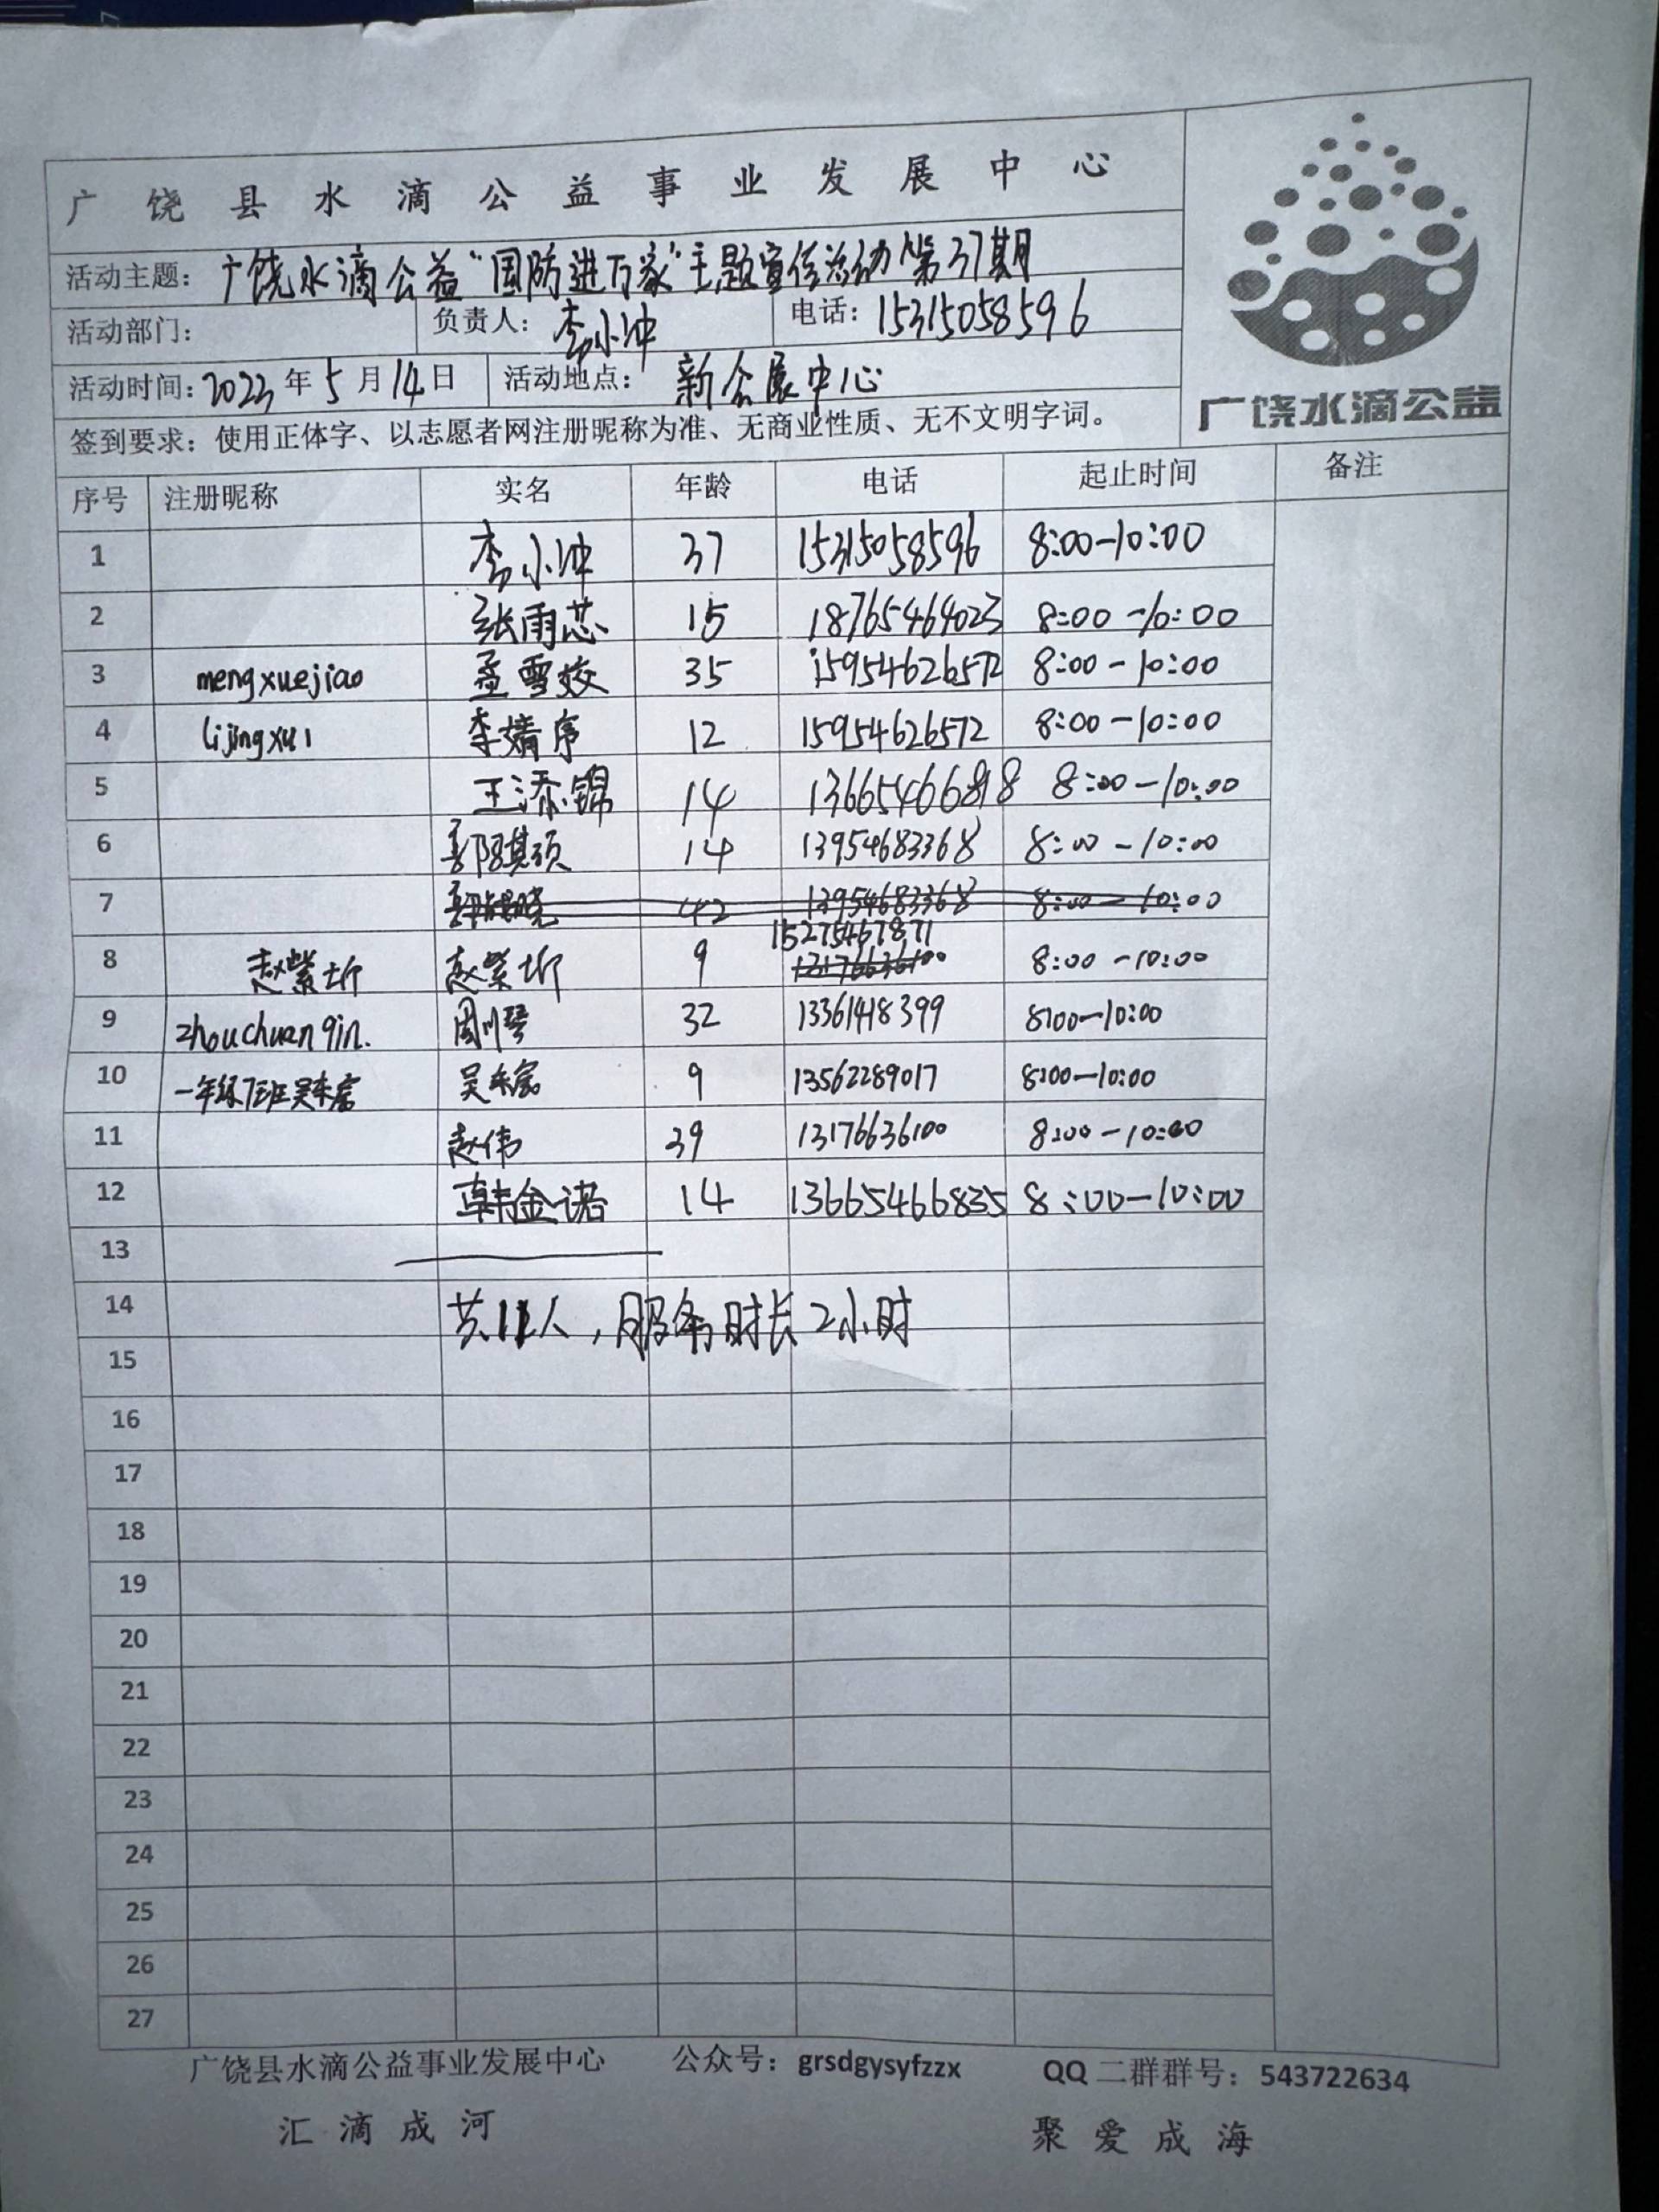 广饶县水滴公益事业发展中心
活动主题：广饶水滴公益“国防进万家”主题宣传活动第37期
活动部门： 负责人：李小冲 电话：15315058596
活动时间：2023年5月14日 活动地点：新会展中心
签到要求：使用正体字、以志愿者网注册昵称为准、无商业性质、无不文明字词。
广饶水滴公益
序号 注册昵称 实名 年龄 电话 起止时间 备注
1 李小冲 37 15315058596 8:00-10:00
2 张雨芯 15 18765464023 8:00-10:00
3 mengxuejiao 孟雪姣 35 15954626572 8:00-10:00
4 lijingxu1 李婧序 12 15954626572 8:00-10:00
5 王添锦 14 8:00-10:00
6 14 13954683368 8:00-10:00
7 42 13954683368 8:00-10:00
15275467871
8 赵紫圻 赵紫圻 9 13176636100 8:00-10:00
9 zhouchuanqin. 周川琴 32 13361418399 8:00-10:00
10 一年级7班吴 吴 9 13562289017 8:00-10:00
11 赵伟 39 13176636100 8:00-10:00
12 韩金诺 14 13665466835 8:00-10:00
13
14 共11人，服务时长2小时
15
16
17
18
19
20
21
22
23
24
25
26
27
广饶县水滴公益事业发展中心 公众号：grsdgysyfzzx QQ二群群号：543722634
汇滴成河 聚爱成海